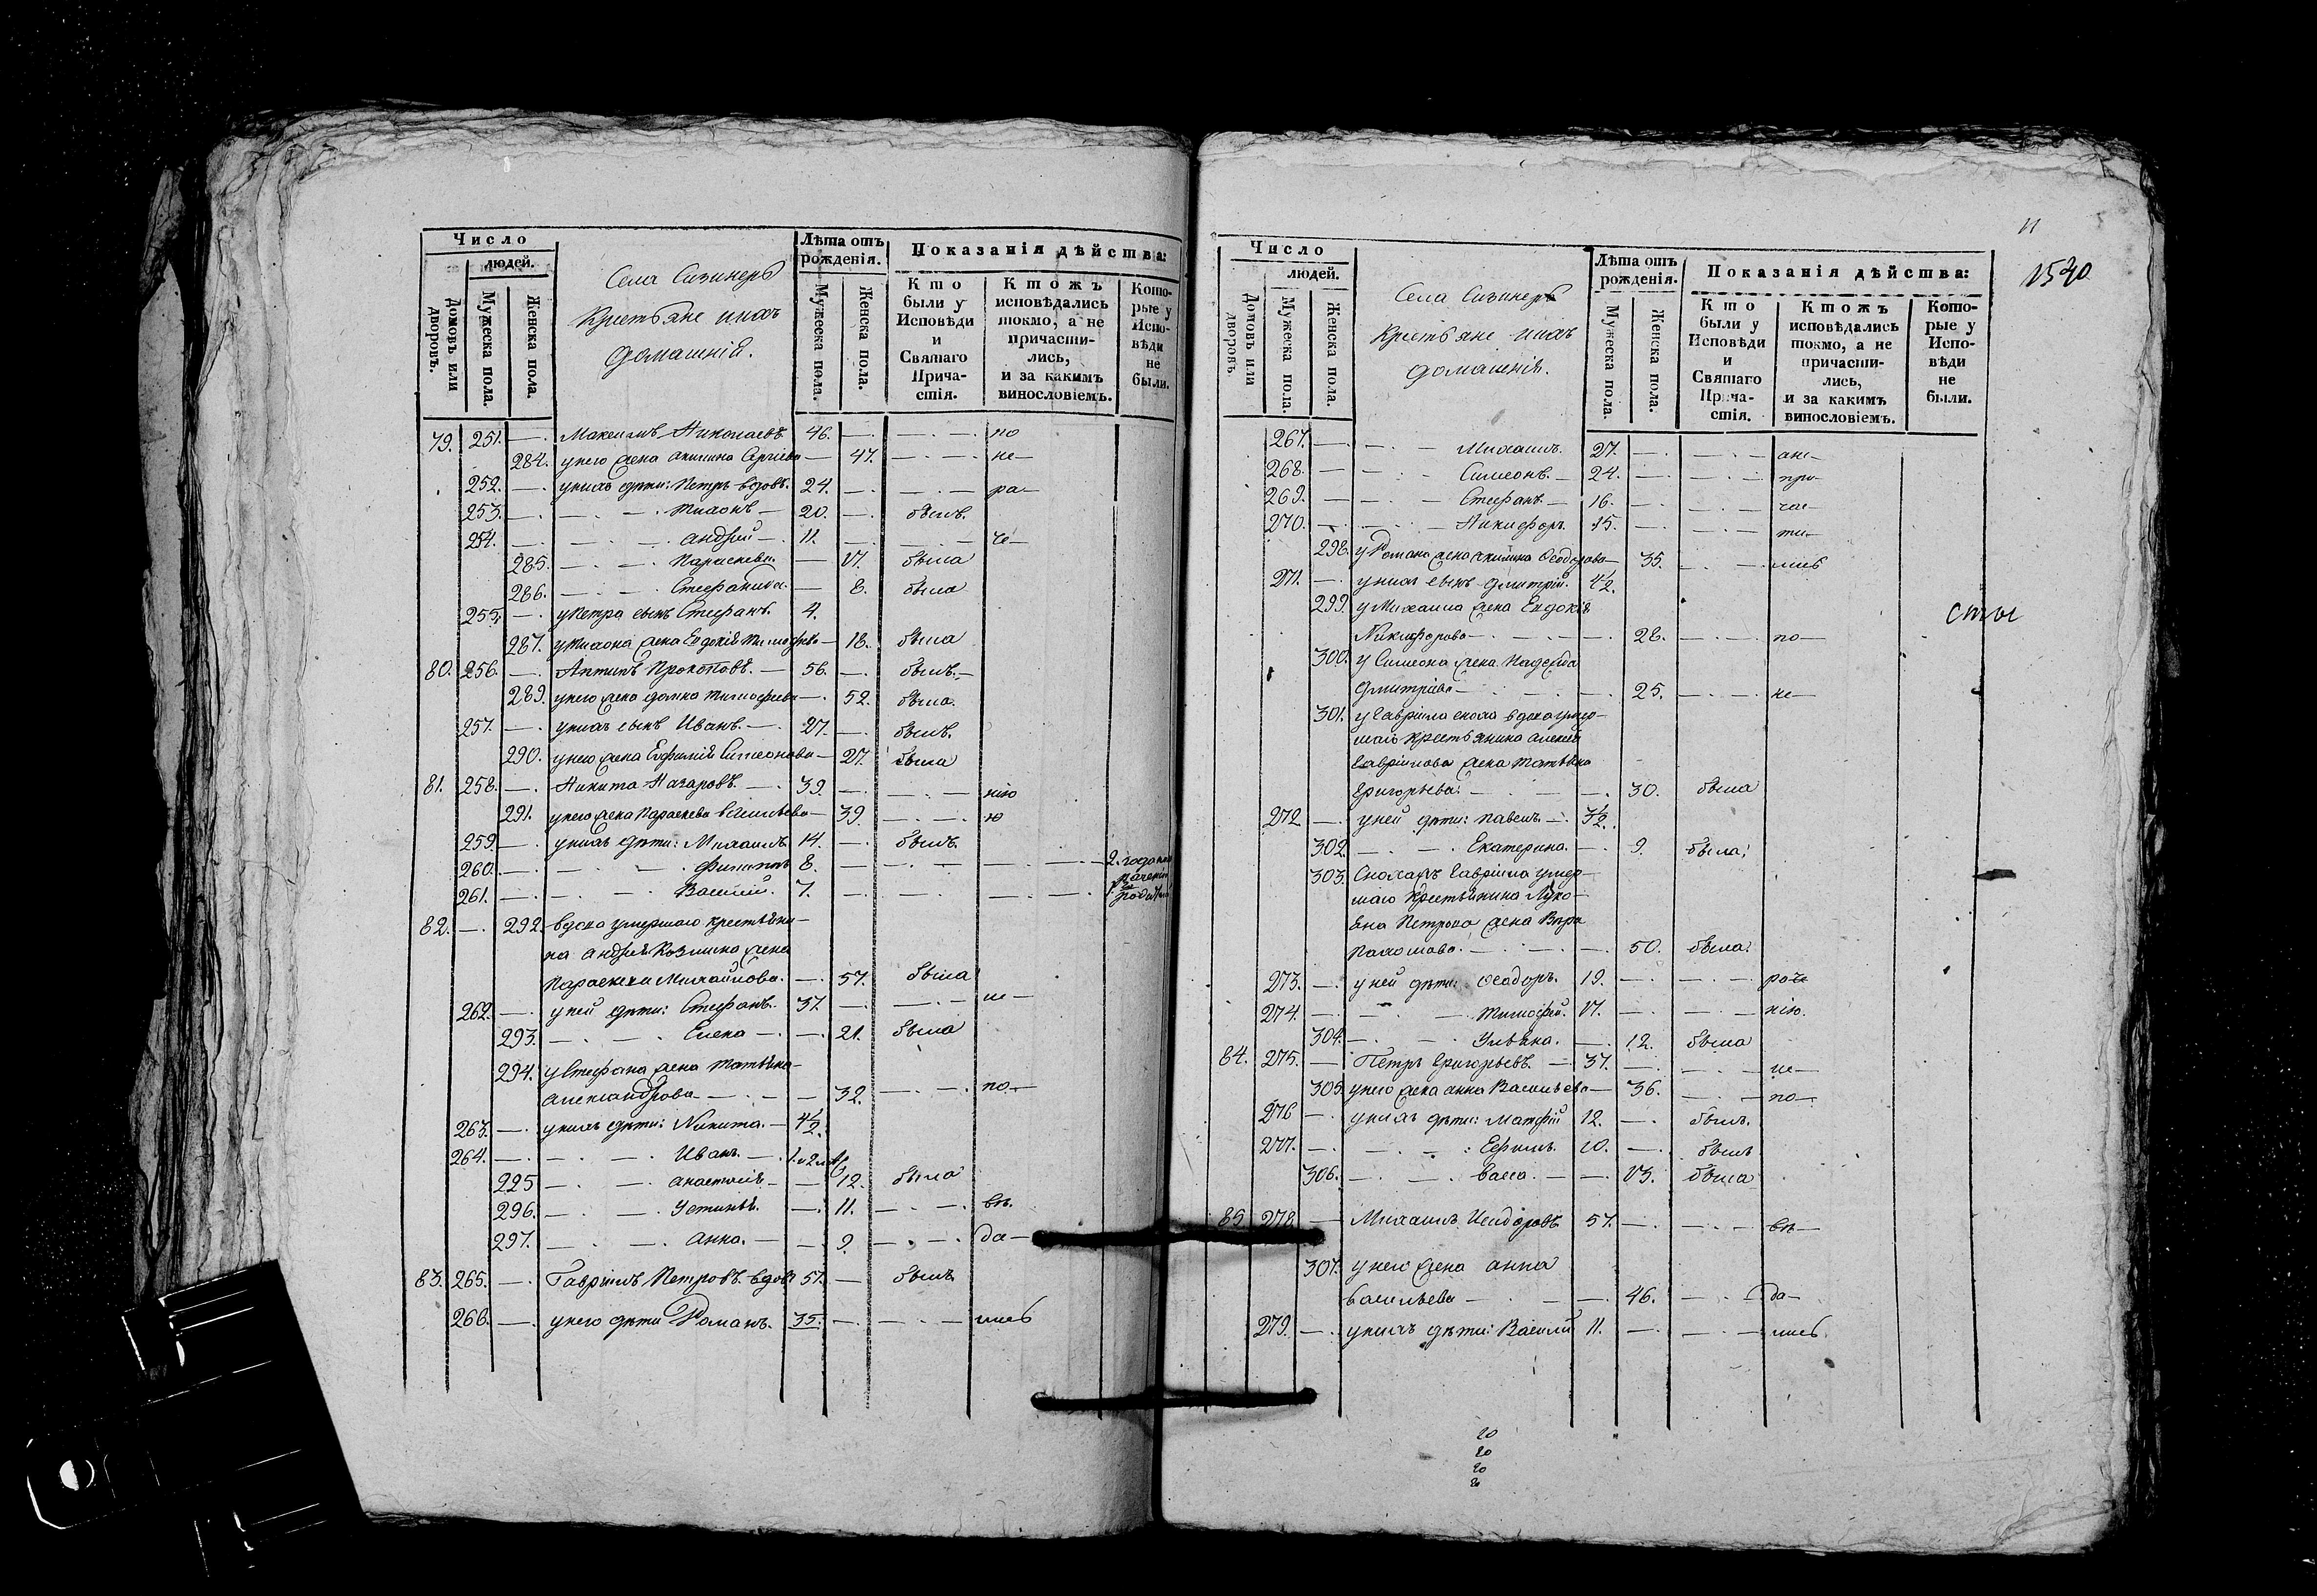 Число
людей.
Домовъ или дворовъ.
Мужеска пола.
Женска пола.
Села Сизинеръ
Крестьяне ихъ
домашнія.
Лѣта отъ рожденія.
Мужеска пола.
Женска пола.
Показанія дѣйства:
Кто были у Исповѣди и Святаго Причастія.
Ктожъ исповѣдались токмо, а не причастились, и за какимъ винословіемъ.
Которые у Исповѣди не были.
79. 251. —. Максимъ Николаевъ. 46. —. —.—. по
284. у него жена Акилина Сергіева — 47. —.—.— не—
252. —. у нихъ дѣти: Петръ вдовъ. 24. —. —.— ра—
253. —. —.—. Тихонъ — 20. —. былъ.
254. —. —.—. Андрей —. 11. —. —.— че—
285. —.—. Параскева. — 17. была
286. —.—. Стефанида. — 8. была
255. —. у Петра сынъ Стефанъ. 4.
287. у Тихона жена Евдокія Тимофѣева — 18. была
80. 256. —. Антипъ Прокопьевъ. — 56. —. былъ.—
289. у него жена Домна Тимофеева —. 52. была.
257. —. у нихъ сынъ Иванъ. —. 27. —. былъ.
290. у него жена Евфимія Симеонова — 27. была
81. 258. —. Никита Назаровъ. —. 39. —. —.— нію
291. у него жена Параскева Васильева — 39. —.—. ю
259. —. у нихъ дѣти: Михаилъ 14. —. былъ.
260. —. —.—. Филиппъ 8. —.—.—
261. —. —.—. Василій. 7. —.—.—
82. —. 292. вдова умершаго крестьяни-
на Андрея Козмина жена
Параскева Михайлова. —. 57. была
262. —. у ней дѣти: Стефанъ. 37. —. —.— не—
293. —.—. Елена —. —. 21. была
294. у Стефана жена Татьяна
Александрова — 32. —.—. по—
263. —. у нихъ дѣти: Никита. — 4½.
264. —. —.—. Иванъ. —.
295 —.—. Анастасія — — 12. была
296. —.—. Устинья. —. 11. —.—. въ.
297. —.—. Анна. — — 9. —.—. да—
83. 265. —. Гавріилъ Петровъ вдовъ 57. — былъ
266. —. у него дѣти Романъ. 35. —. —.— лись
11
1530
Число
людей.
Домовъ или дворовъ.
Мужеска пола.
Женска пола.
Села Сизинеръ
Крестьяне ихъ
домашнія.
Лѣта отъ рожденія.
Мужеска пола.
Женска пола.
Показанія дѣйства:
Кто были у Исповѣди и Святаго Причастія.
Ктожъ исповѣдались токмо, а не причастились, и за какимъ винословіемъ.
Которые у Исповѣди не были.
267. —. —.— Михаилъ. 27. —. —.—
268. — —.— Симеонъ. — 24. —. —.— при—
269. — —.— Стефанъ — 16. —. —.— час—
270. —. —.— Никифоръ. 15. —. —.— ти—
298. у Романа жена Акилина Ѳеодорова — 35. —.— лись
271. —. у нихъ сынъ Дмитрій. 4½.
299. у Михаила жена Евдокія
Никифорова —.—.—. 28. —.—. по—
300. у Симеона жена Надежда
Дмитріева —.—.—. 25. —.—. не—
301. у Гавріила сноха вдова умер-
шаго крестьянина Алексея
Гаврилова жена Татьяна
Григорьева. —.—. 30. была
272 —. у ней дѣти: Павелъ —. 3½.
302. —.—. Екатерина. —. 9. была.
303. Сноха Гавріила умер-
шаго крестьянина Луко-
яна Петрова жена Вѣра
—.—.—. 50. была.
273. —. у ней дѣти: Ѳеодоръ. 19. —. —.— раче
274. —. —.— Тимофей. 17. —. —.— нію.
304. —.—. Ульяна. —. 12. была
84. 275. — Петръ Григорьевъ. — 37. —. —.— не—
305. у него жена Анна Васильева — 36. —.— по—
276 —. у нихъ дѣти: Матфій 12. —. былъ.
277. —. —.—. Ефимъ. 10. —. былъ
306. —.—. Васса. — —. 13. была
85 278 — Михаилъ Исидоровъ 57. —. —.— въ—
307. у него жена Анна
Васильева —.—. 46. —.— да—
279. —. у нихъ дѣти: Василій 11. —. —.— лись.
сты
20
20
20
20